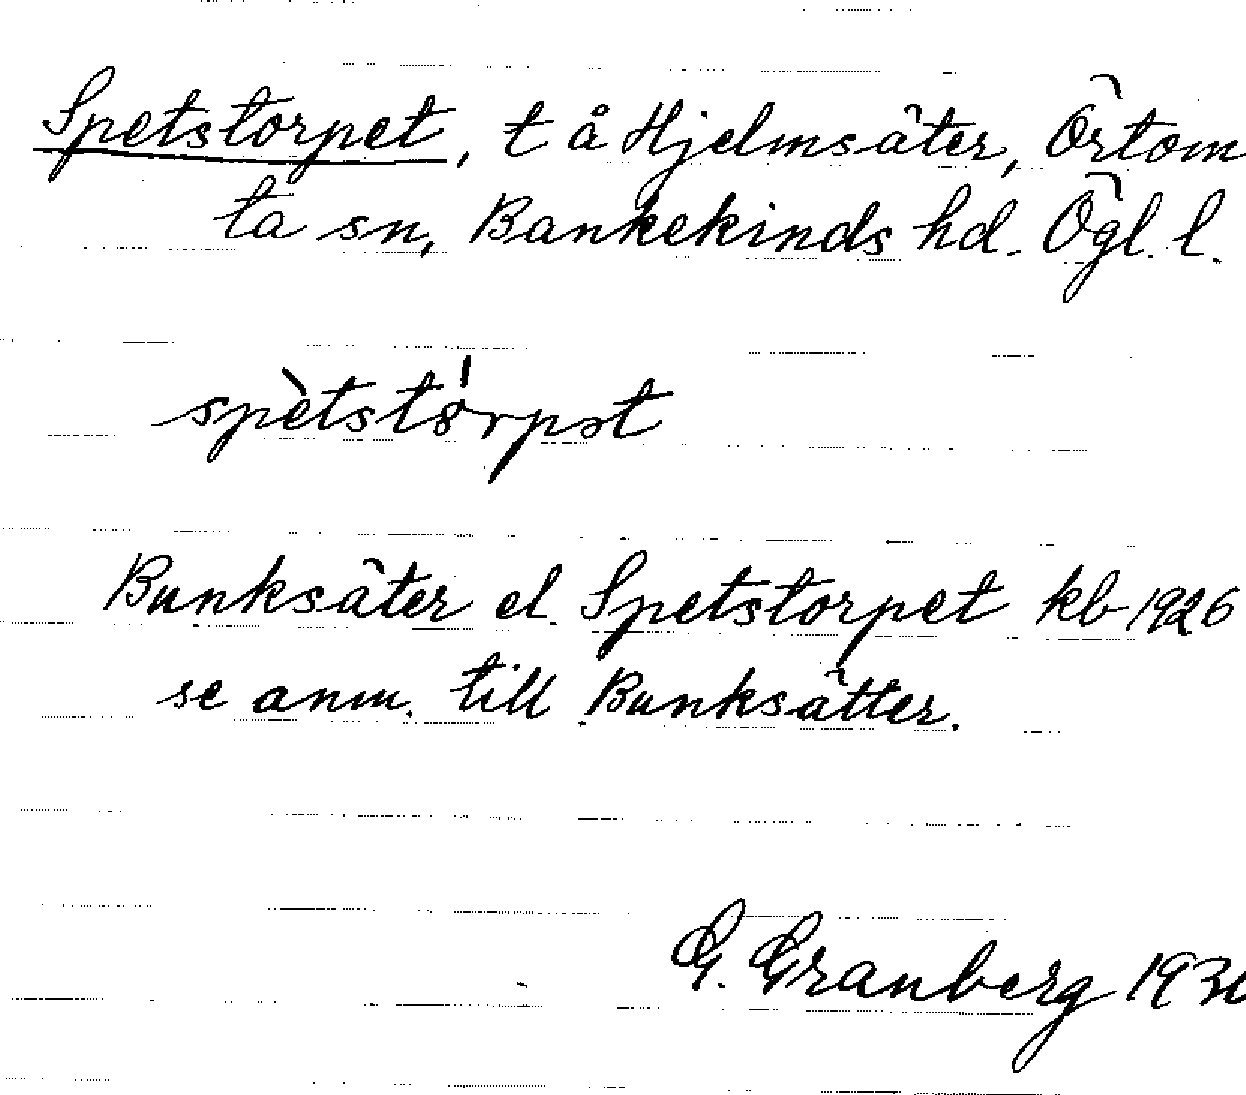 Spetstorpet, t å Hjelmsäter, Örtom
ta sn, Bankekinds hd. Ögl. l.
spètstórpət
Bunksäter el. Spetstorpet kb 1926
se anm. till Bunksätter.
G. Granberg